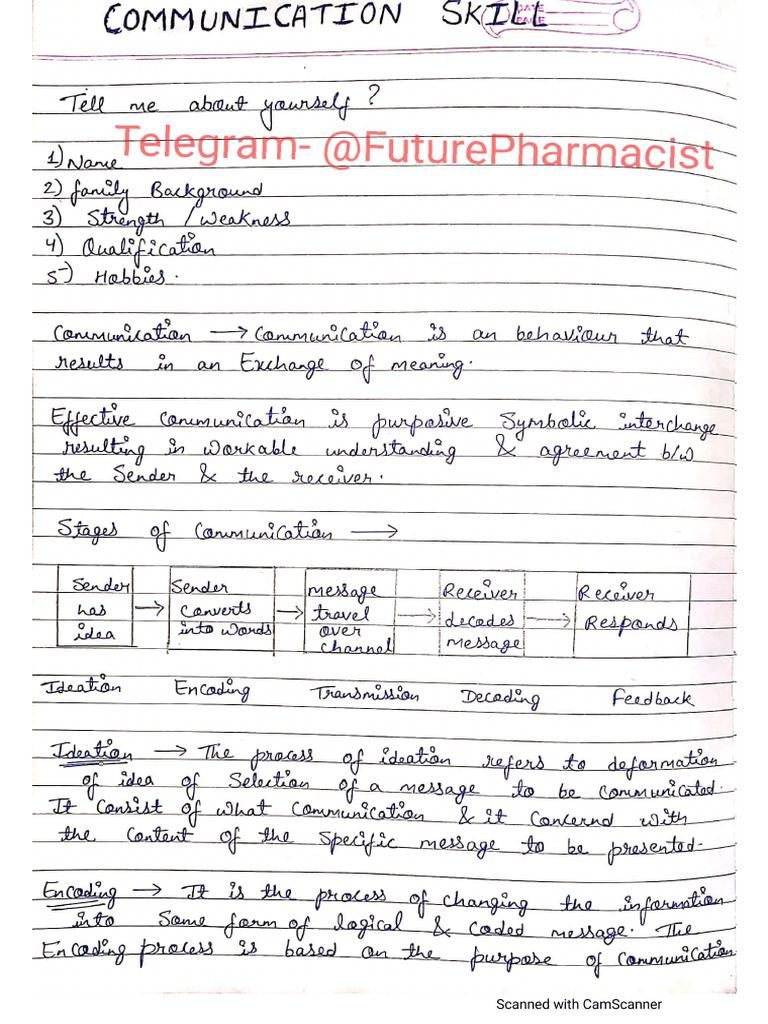 COMMUNICATION SKILL
DATE
PAGE
Tell me about yourself?
Telegram- @FuturePharmacist
1) Name
2) family Background
3) Strength / Weakness
4) Qualification
5) Hobbies.
Communication → Communication is an behaviour that
results in an Exchange of meaning.
Effective communication is purposive Symbolic interchange
resulting in workable understanding & agreement b/w
the Sender & the receiver.
Stages of Communication →
Sender has idea → Sender converts into words → message travel over channel → Receiver decodes message → Receiver Responds
Ideation Encoding Transmission Decoding Feedback
Ideation → The process of ideation refers to deformation
of idea of Selection of a message to be communicated.
It consist of what communication & it concernd with
the content of the specific message to be presented.
Encoding → It is the process of changing the information
into Some form of logical & coded message. The
Encoding process is based on the purpose of communication
Scanned with CamScanner